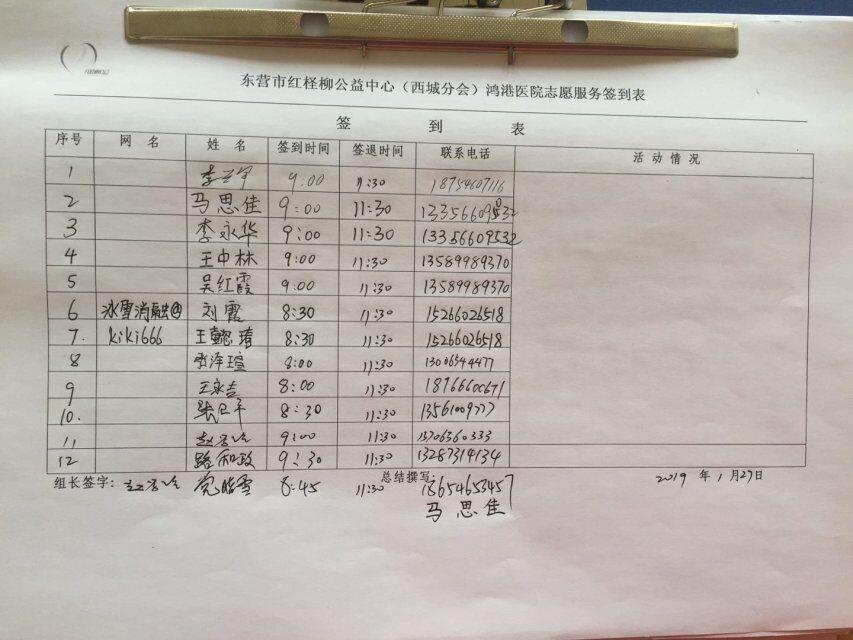 东营市红柽柳公益中心（西城分会）鸿港医院志愿服务签到表
签 到 表
序号 网 名 姓 名 签到时间 签退时间 联系电话 活动情况
1 9:00 11:30 18754607116
2 马思佳 9:00 11:30
3 李永华 9:00 11:30 13356609532
4 王中林 9:00 11:30 13589989370
5 吴红霞 9:00 11:30 13589989370
6 冰雪消融@ 刘霞 8:30 11:30 15266026518
7. kiki666 王懿靖 8:30 11:30 15266026518
8 张泽瑄 8:00 11:30
9 王永吉 8:00 11:30 18766600671
10. 张卫平 8:30 11:30 13561009777
11 9:00 11:30 13706360333
12 路和政 9:30 11:30 13287314134
组长签字： 8:45 11:30 总结撰写： 18654653457 2019 年 1 月 27 日
马思佳